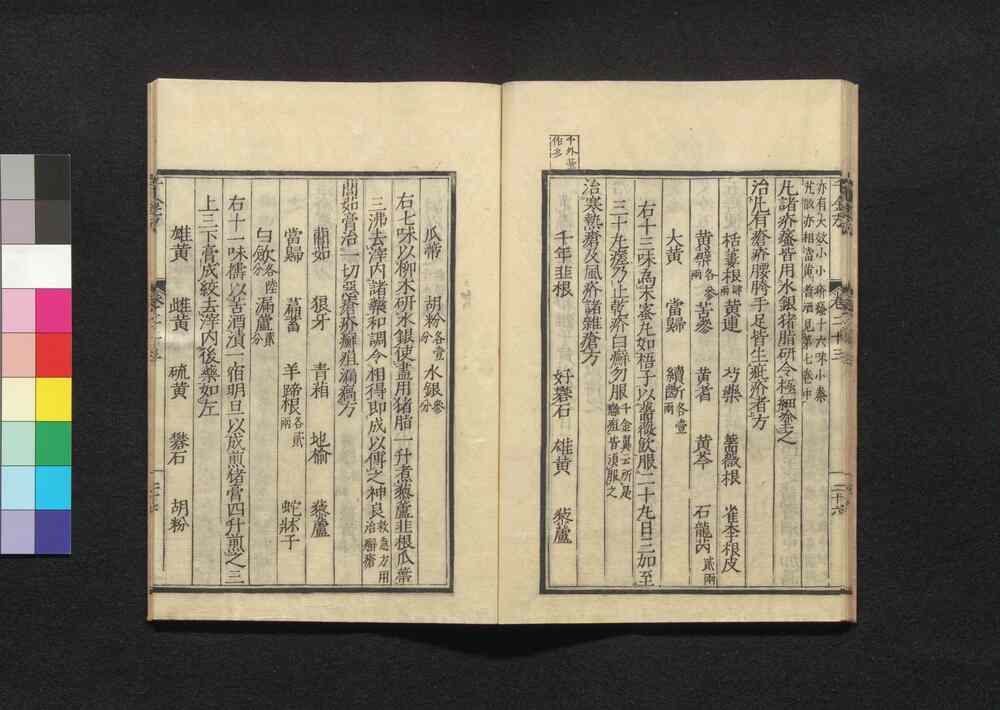 亦有大效小小疥瘡十六味小秦
艽散亦相當黃耆酒見第七卷中
凡諸疥瘡皆用水銀猪脂研令極細塗之
治凡有瘡疥腰胯手足皆生疵疥者方
栝蔞根 黃連 芍藥 薔薇根 雀李根皮
黃蘗各參兩 苦參 黃耆 黃芩 石龍芮貳兩
大黃 當歸 續斷各壹兩
右十三味為末蜜丸如梧子以薔薇飲服二十丸日三加至
三十丸瘥乃止乾疥白癬勿服千金翼云所是
癰疽皆須服之
治寒熱瘡及風疥諸雜瘡方
千年韭根 好礬石 雄黃 藜蘆
瓜蒂 胡粉各壹分 水銀參分
右七味以柳木研水銀使盡用猪脂一升煮藜蘆韭根瓜蒂
三沸去滓內諸藥和調令相得即成以傅之神良救急方用
治癬瘡
䕡茹膏治一切惡瘡疥癬疽漏瘑方
䕡茹 狼牙 青葙 地榆 藜蘆
當歸 萹蓄 羊蹄根各貳兩 蛇牀子
白斂各陸分 漏蘆貳分
右十一味擣以苦酒漬一宿明旦以成煎猪膏四升煎之三
上三下膏成絞去滓內後藥如左
雄黃 雌黃 硫黃 礬石 胡粉